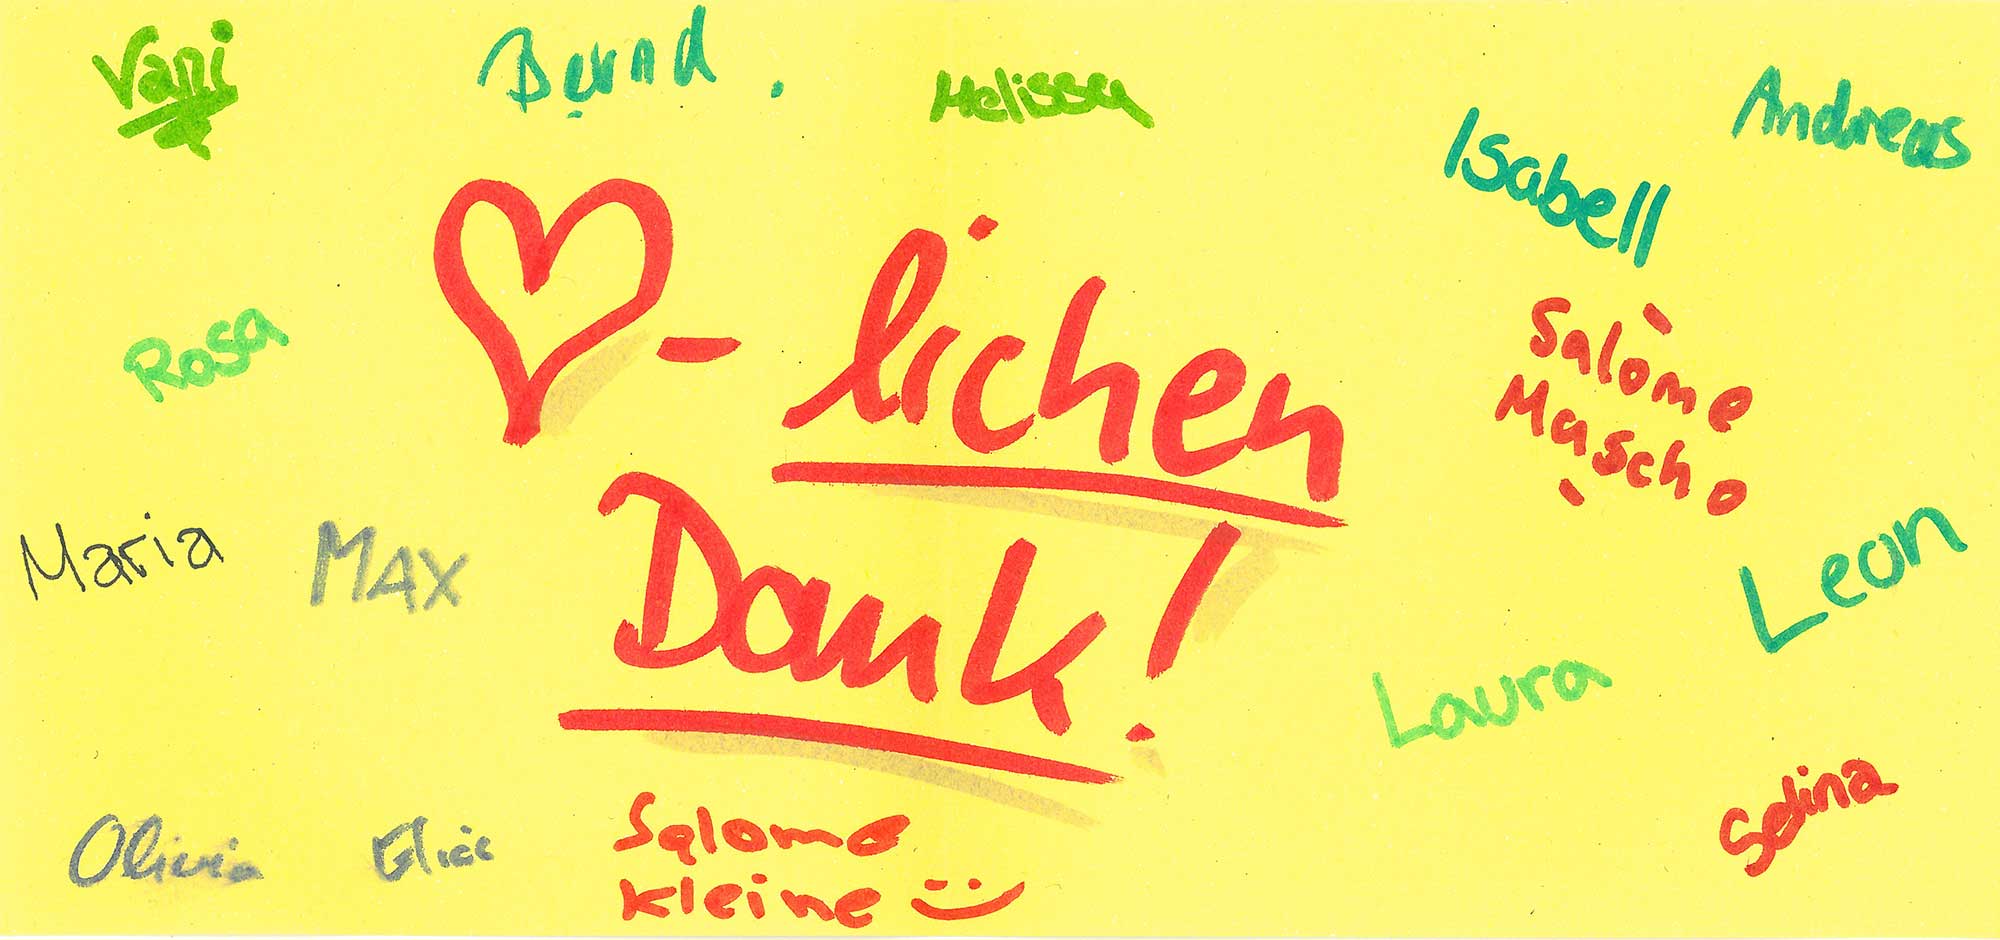 Vani
Bernd.
Melissa
Andreas
Isabell
Rosa
♡-lichen
Salòme
Mascho
Dank!
Maria
Max
Leon
Laura
Selina
Olivia
Salome
Kleine